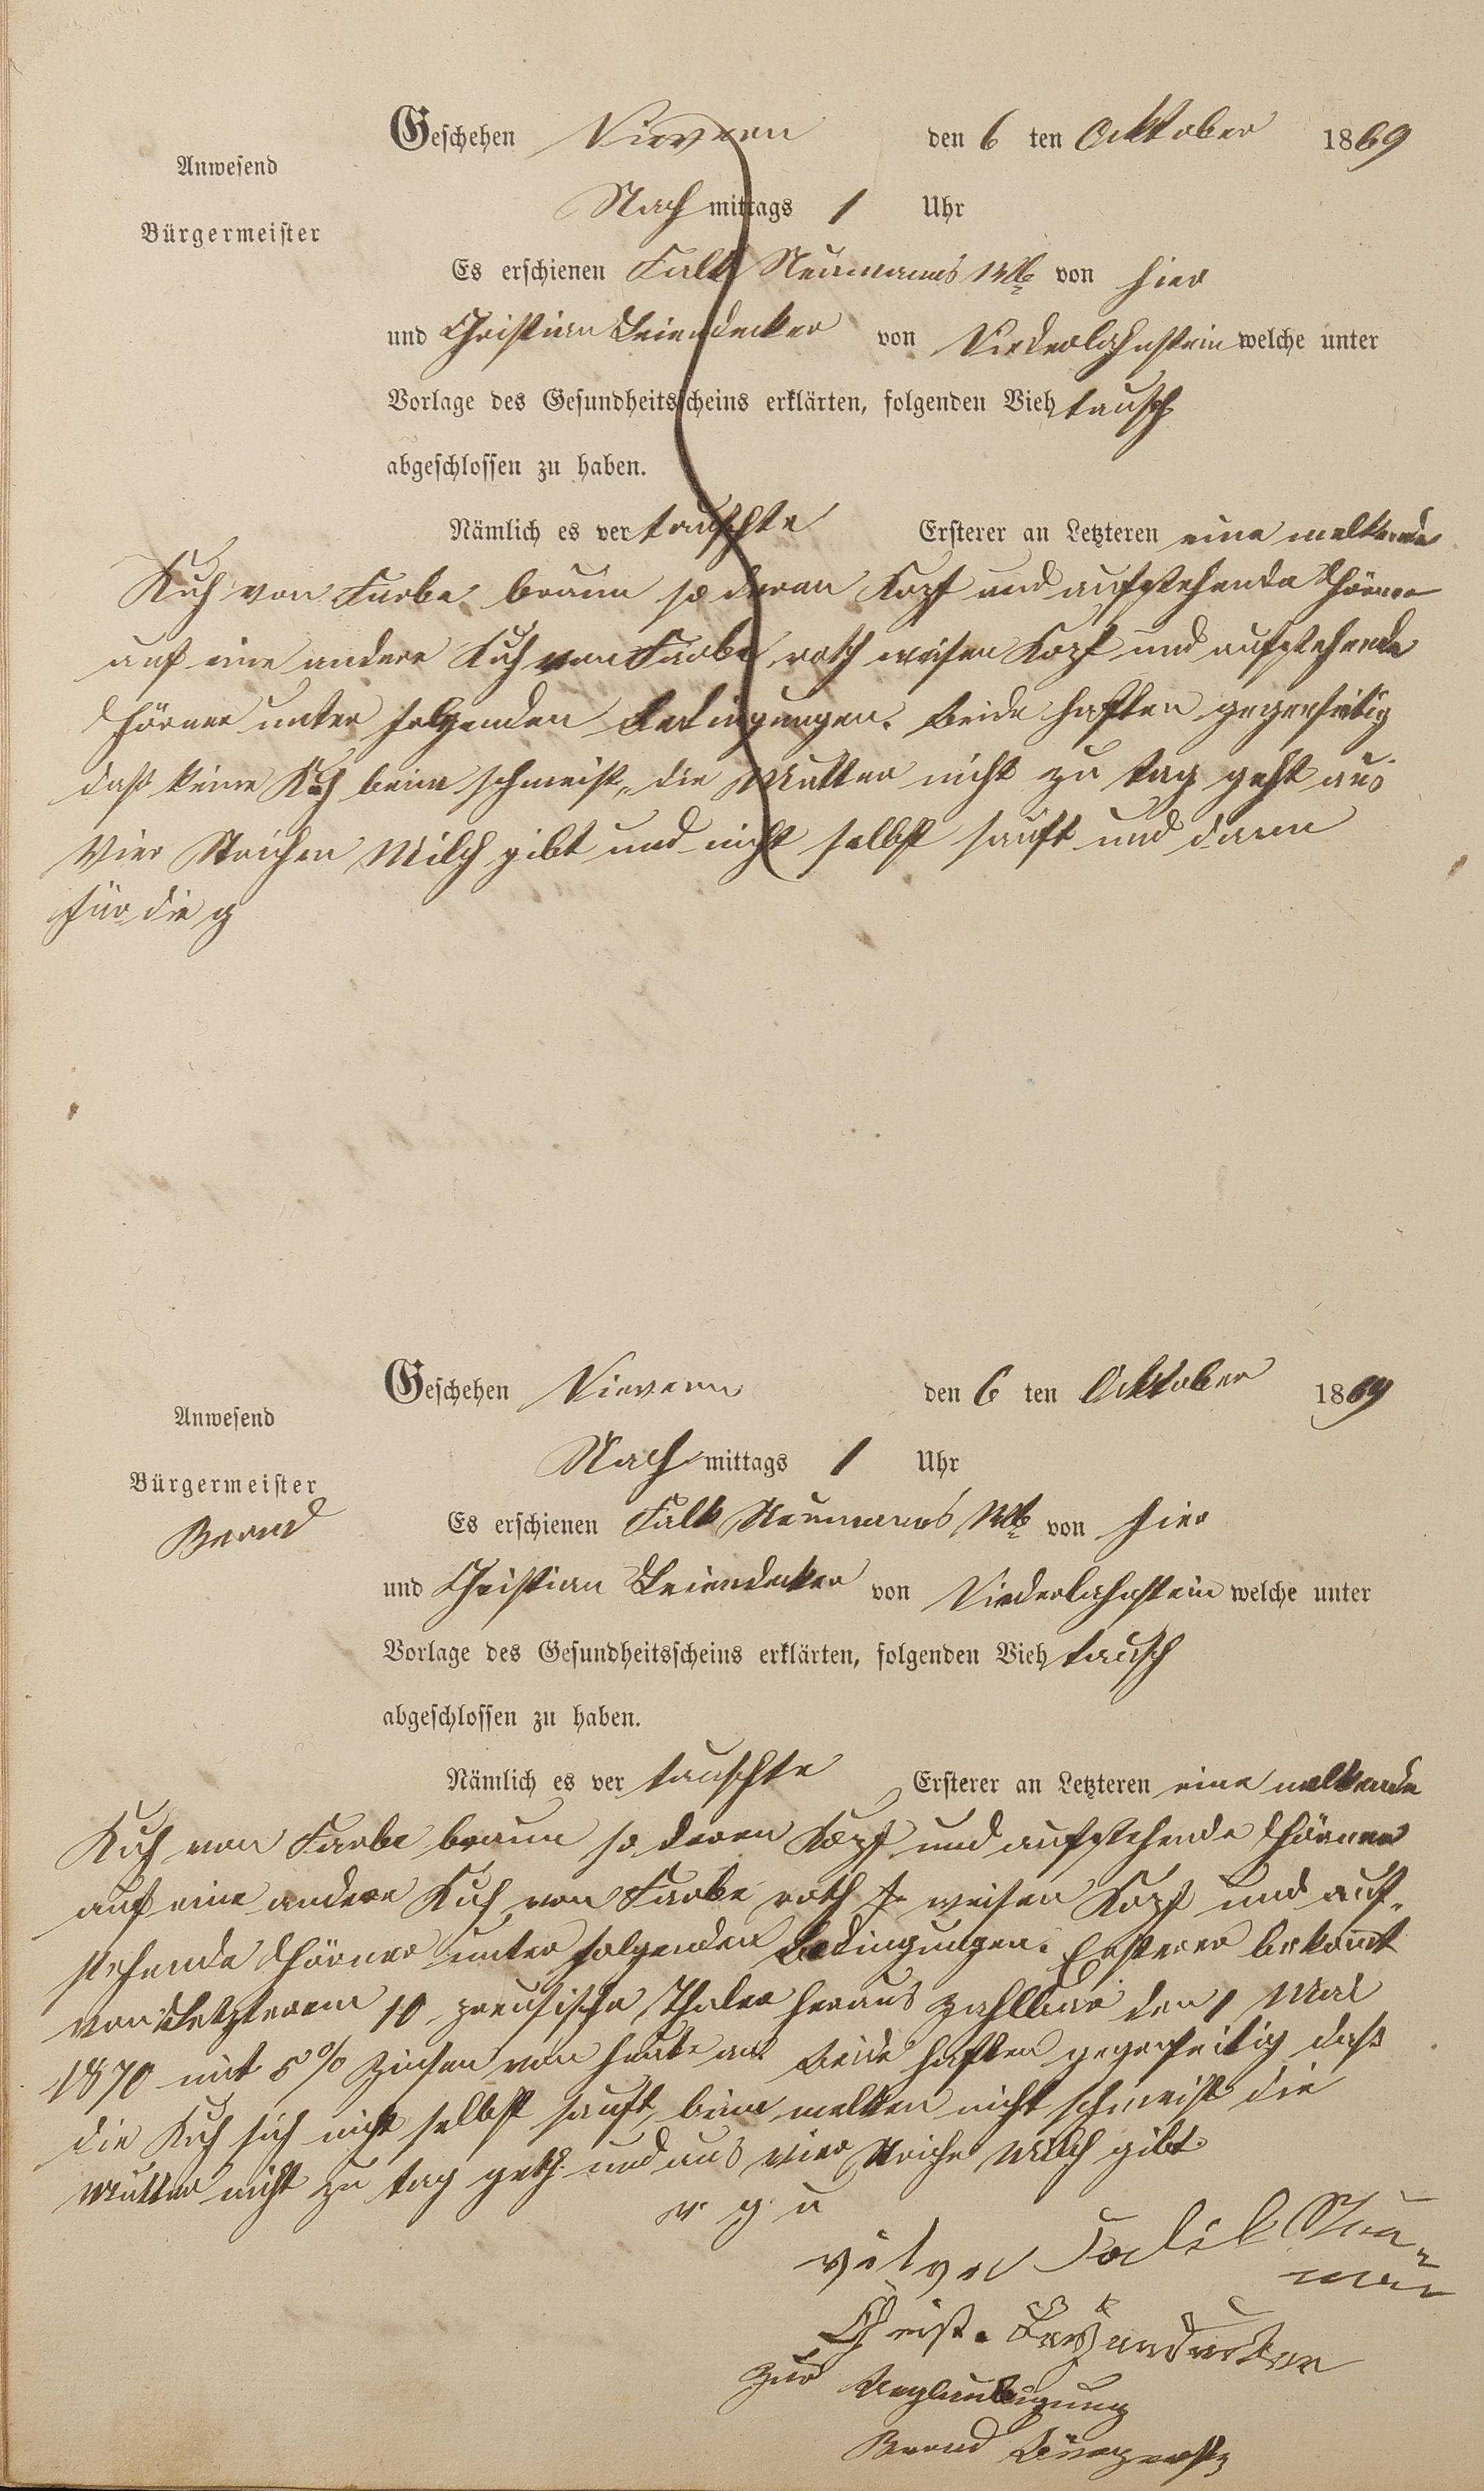 Geschehen Nievern den 6 ten Oktober 1869
Anwesend
Nach mittags 1 Uhr
Bürgermeister
Es erschienen Falk Neumanns Wb von hier
und Christian Leiendecker von Niederlahnstein welche unter
Vorlage des Gesundheitsscheins erklärten, folgenden Vieh tausch
abgeschlossen zu haben.
Nämlich es ver tauschte Ersterer an Letzteren eine melkende
Kuh von Farbe braun so deren Kopf und aufstehende Hörner
auf eine andere Kuh von Farbe roth weisen Kopf und aufstehende
Hörner unter folgenden Bedingungen. Beide haften gegenseitig
daß keine Kuh beim schmeist, die Mutter nicht zu tag geht aus
Vier Strichen Milch gibt und nicht selbst sauft und dann
für die g
Geschehen Nievern den 6 ten Oktober 1869
Anwesend
Nach mittags 1 Uhr
Bürgermeister
Bernd
Es erschienen Falk Neumanns Wb von hier
und Christian Leiendecker von Niederlahnstein welche unter
Vorlage des Gesundheitsscheins erklärten, folgenden Vieh tausch
abgeschlossen zu haben.
Nämlich es ver tauschte Ersterer an Letzteren eine melkende
Kuh von Farbe braun so deren Kopf und aufstehende Hörner
auf eine andere Kuh von Farbe roth weisen Kopf und auf-
stehende Hörner unter folgenden Bedingungen. Ersterer bekommt
von Letzterem 10 preusische Thaler heraus zahlbar den 1 Mai
1870 mit 5% Zinsen von heute an Beide haften gegenseitig daß
die Kuh sich nicht selbst sauft, beim melken nicht schmeist die
Mutter nicht zu tag geth und aus vier Striche Milch gibt.
v. g. u
Christ. Leyendecker
Zur Beglaubigung
Bernd Bürgerstr